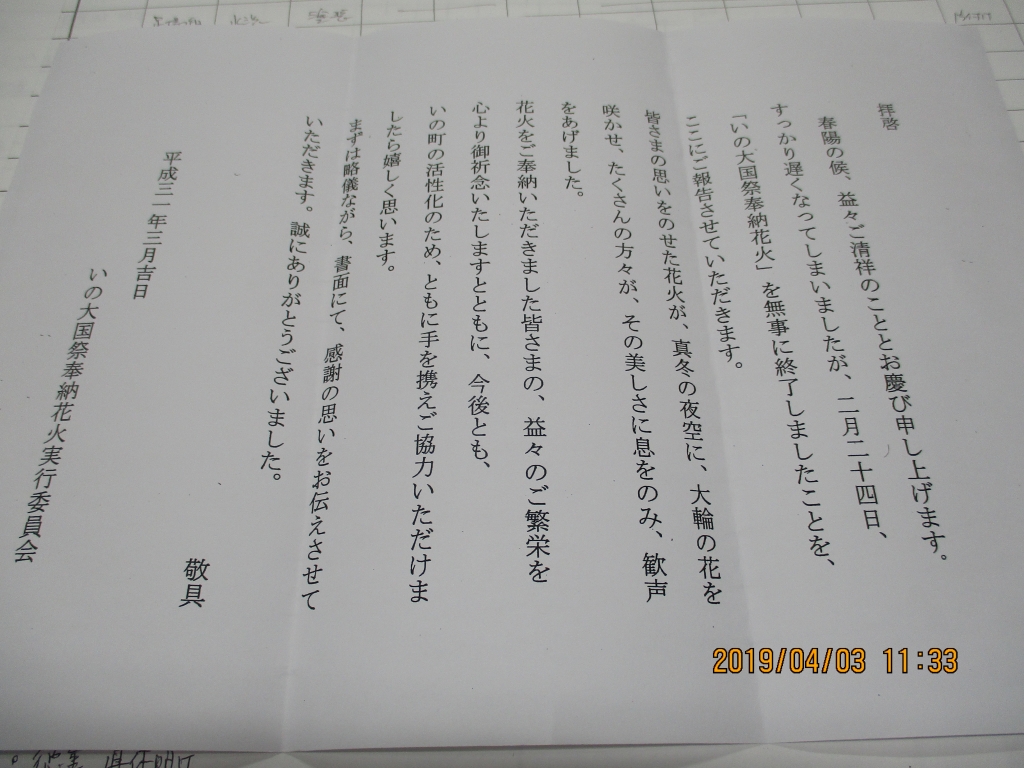 拝啓
春陽の候、益々ご清祥のこととお慶び申し上げます。
すっかり遅くなってしまいましたが、二月二十四日、
「いの大国祭奉納花火」を無事に終了しましたことを、
ここにご報告させていただきます。
皆さまの思いをのせた花火が、真冬の夜空に、大輪の花を
咲かせ、たくさんの方々が、その美しさに息をのみ、歓声
をあげました。
花火をご奉納いただきました皆さまの、益々のご繁栄を
心より御祈念いたしますとともに、今後とも、
いの町の活性化のため、ともに手を携えご協力いただけま
したら嬉しく思います。
まずは略儀ながら、書面にて、感謝の思いをお伝えさせて
いただきます。誠にありがとうございました。
敬具
平成三一年三月吉日
いの大国祭奉納花火実行委員会
2019/04/03 11:33